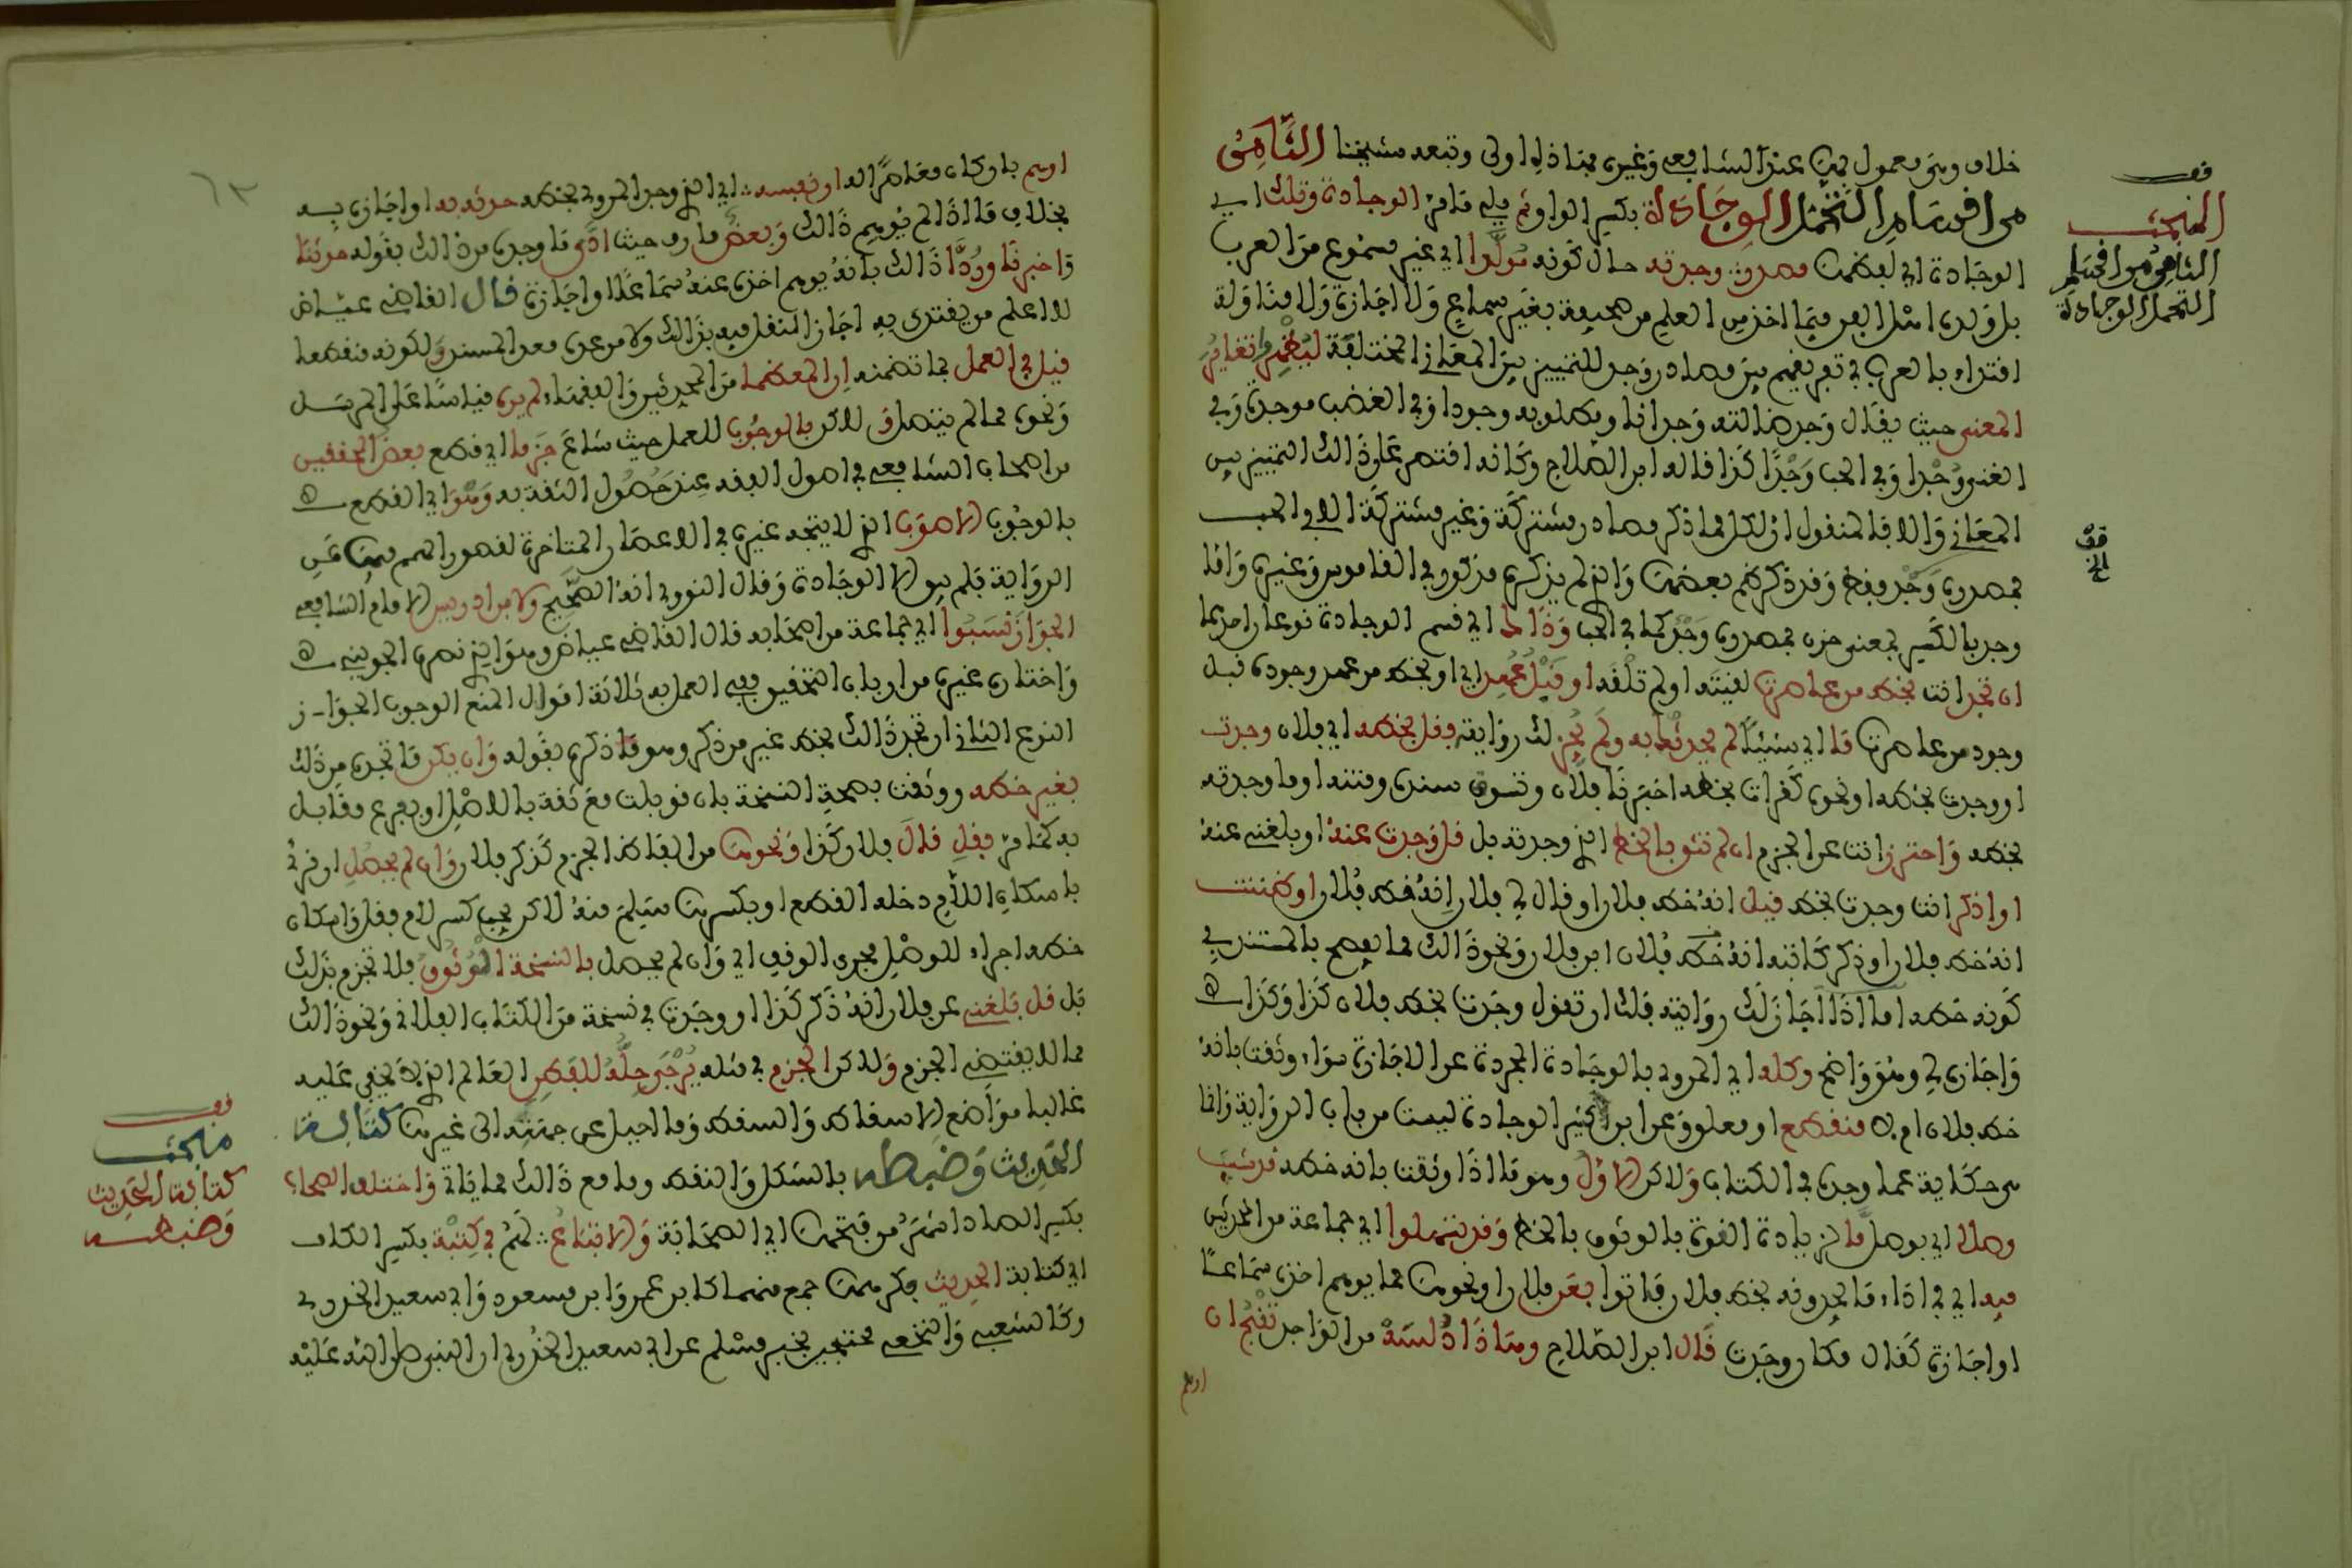 خلاف وهي معمول بها عند الشافعي وغيره فهذه اولى وتبعه شيخنا الثامن
من اقسام التحمل الوجادة بكسر الواو ثم يلي ما مر الوجادة وتلك اي
الوجادة اي لفظها مصدر وجدته حال كونه مولدا اي غير مسموع من العرب
بل ولده اهل الفن فيما اخذ من العلم من صحيفة بغير سماع ولا اجازة ولا مناولة
اقتداء بالعرب في تفريقهم بين مصادر وجد للتمييز بين المعاني المختلفة ليظهر تغاير
المعنى حيث يقال وجد ضالته وجدانا ومطلوبه وجودا وفي الغضب موجدة وفي
الغنى وجدا وفي الحب وجدا كذا قاله ابن الصلاح وكانه اقتصر على ذلك التمييز بين
المعاني والا فالمنقول ان لكل مما ذكر مصادر مشتركة وغير مشتركة الا في الحب
فمصدره وجد فقط وقد ذكرتم بعضها والذي لم يذكره مذكور في القاموس وغيره واما
وجد بالكسر بمعنى حزن فمصدره وجد كما في الحب وذا اي قسم الوجادة نوعان احدهما
ان تجد انت بخط من عاصرت لقيته او لم تلقه او قبل عهد اي او بخط من عهد وجوده قبل
وجود من عاصرت ما اي شيئا لم يحدثك به ولم يجز لك روايته فقل بخطه اي فلان وجدت
او وجدت بخطه او نحوه كقرات بخطه اخبرنا فلان وتسوق سنده ومتنه او ما وجدته
بخطه واحترز انت عن الجزم ان لم تثق بالخط الذي وجدته بل قل وجدت عنه او بلغني عنه
او اذكر انت وجدت بخط قيل انه خط فلان او قال لي فلان انه خط فلان او ظننت
انه خط فلان او ذكر كاتبه انه خط فلان ابن فلان ونحو ذلك مما يفصح بالمستند في
كونه خطه اما اذا اجاز لك روايته فلك ان تقول وجدت بخط فلان كذا وكذا
واجازه لي وهو واضح وكله اي المروي بالوجادة المجردة عن الاجازة سواء وثقت بانه
خط فلان ام لا منقطع او معلق وعن ابن كثير الوجادة ليست من باب الرواية وانما
هي حكاية عما وجده في الكتاب ولكن الاول وهو ما اذا وثقت بانه خطه قد شيب
وصلا اي بوصل ما لزيادة القوة بالوثوق بالخط وقد تسهلوا اي جماعة من المحدثين
فيه اي في اداء ما يجدونه بخط فلان فاتوا بعن فلان او نحوها مما يوهم اخذه سماعا
او اجازة كقال مكان وجدت قال ابن الصلاح وهذا دلسة من الواجد تقبح ان
اوهم
قف
المبحث
الثامن من اقسام
التحمل الوجادة
قف
الخ
اوهم بان كان معاصرا له او نفسه اي الذي وجد المروي بخطه حدثه به او اجازه به
بخلاف ما اذا لم يوهم ذلك وبعض ما رف حيث ادى ما وجده من ذلك بقوله حدثنا
واخبرنا ورد ذلك بانه يوهم اخذه عنه سماعا او اجازة قال القاضي عياض
لا اعلم من يقتدى به اجاز النقل فيه بذلك ولا من عده معد المسند ولكونه منقطعا
قيل في العمل بما تضمنه ان المعظما من المحدثين والفقهاء لم يره قياسا على المرسل
ونحوه مما لم يتصل ولكن بالوجوب للعمل حيث ساغ جزما اي قطع بعض المحققين
من اصحاب الشافعي في اصول الفقه عند حصول الثقة به وهو اي القطع
بالوجوب الاصوب الذي لا يتجه غيره في الاعصار المتاخرة لقصور الهمم فيها عن
الرواية فلم يبق الا الوجادة وقال النووي انه الصحيح ولابن ادريس الامام الشافعي
الجواز نسبوا اي جماعة من اصحابه قال القاضي عياض وهو الذي نصره الجويني
واختاره غيره من ارباب التحقيق ففي العمل به ثلاثة اقوال المنع الوجوب الجواز
النوع الثاني ان تجد ذلك بخط غير من ذكر وهو ما ذكره بقوله وان يكن ما تجده من ذلك
بغير خطه ووثقت بصحة النسخة بان قوبلت مع ثقة بالاصل او بفرع مقابل
به كما مر فقل قال فلان كذا ونحوها من الفاظ الجزم كذكر فلان وان لم يحصل او قرئ
باسكان اللام دخله القطع او بكسرها سلم منه لكن يجب كسر لام فقل واسكان
خطه اجراء للوصل مجرى الوقف اي وان لم يحصل بالنسخة الوثوق فلا تجزم بذلك
بل قل بلغني عن فلان انه ذكر كذا او وجدت في نسخة من الكتاب الفلاني ونحو ذلك
مما لا يقتضي الجزم ولكن الجزم في مثله يرجى حله للفطن العالم الذي لا يخفى عليه
غالبا مواضع الاسقاط والسقط وما احيل عن جهته الى غيرها كتابة
الحديث وضبطه بالشكل والنقط وما مع ذلك مما ياتي واختلف الصحاب
بكسر الصاد اشهر من فتحها اي الصحابة والاتباع لهم في كتبة بكسر الكاف
اي كتابة الحديث فكرهها جمع منهم كابن عمر وابن مسعود وابي سعيد الخدري
وكالشعبي والنخعي محتجين بخبر مسلم عن ابي سعيد الخدري ان النبي صلى الله عليه
قف
مبحث
كتابة الحديث
وضبطه